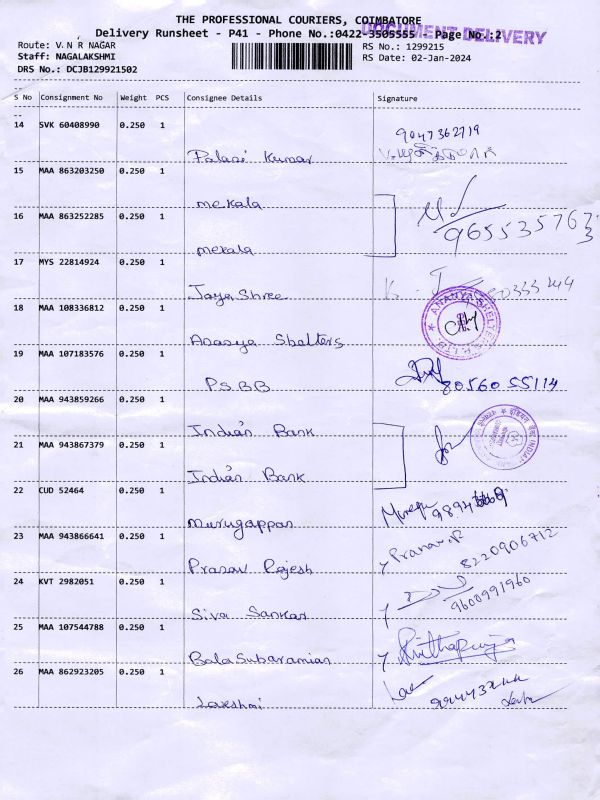 THE PROFESSIONAL COURIERS, COIMBATORE
DOCUMENT DELIVERY
Delivery Runsheet - P41 - Phone No.:0422-3505555 Page No.:2
Route: V.N R NAGAR RS No.: 1299215
Staff: NAGALAKSHMI RS Date: 02-Jan-2024
DRS No.: DCJB129921502
S No Consignment No Weight PCS Consignee Details Signature
14 SVK 60408990 0.250 1
9047362719
Palani Kumar
15 MAA 863203250 0.250 1
mekala
16 MAA 863252285 0.250 1
9655357633
mekala
17 MYS 22814924 0.250 1
Jaya Shree
18 MAA 108336812 0.250 1
ANANYA SHELTERS P. LTD.
Ananya Shelters
19 MAA 107183576 0.250 1
P.S.B.B
8056055114
20 MAA 943859266 0.250 1
Indian Bank
21 MAA 943867379 0.250 1
Indian Bank
22 CUD 52464 0.250 1
Murugappan
23 MAA 943866641 0.250 1
Pranav.R
8220906712
Pranav Rajesh
24 KVT 2982051 0.250 1
9600991960
Siva Sankar
25 MAA 107544788 0.250 1
BalaSubaramian
26 MAA 862923205 0.250 1
Lakshmi